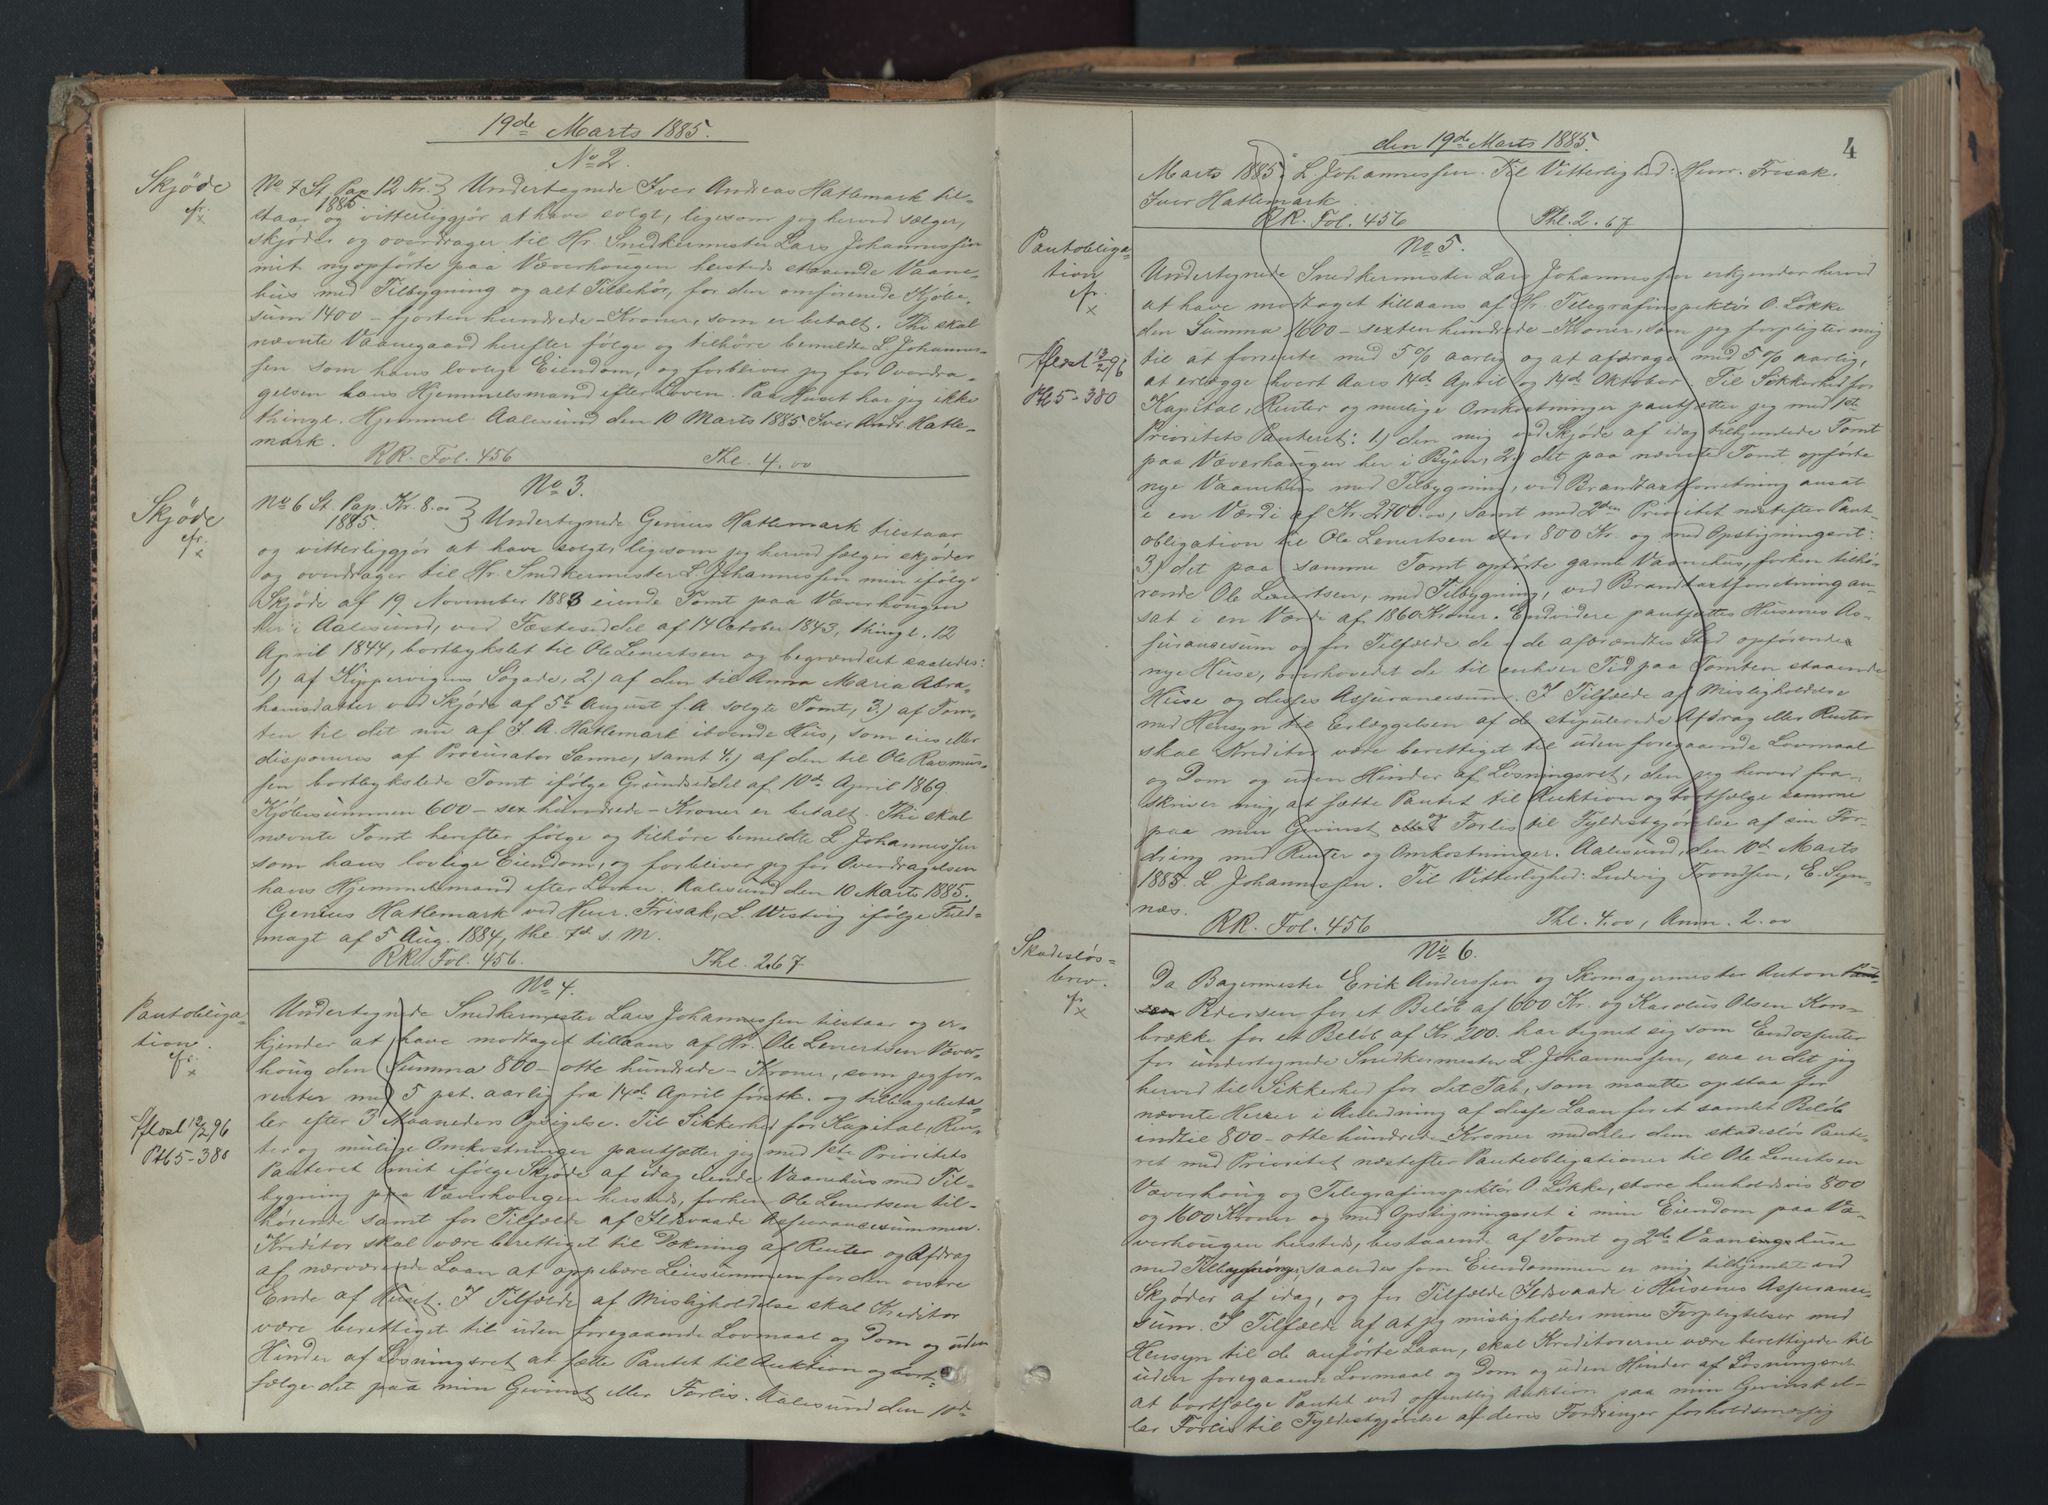 19de Marts 1885.
No 2.
Skjøde
cfr.
x
No 7 St. Pap. 12 Kr. } Undertegnede Iver Andreas Hatlemark til-
1885.
staar og vitterliggjør at have solgt, ligesom jeg herved sælger,
skjøder og overdrager til Hr. Snedkermester Lars Johannessen
mit nyopførte paa Væverhougen hersteds staaende Vaane-
hus med Tilbygning og alt Tilbehør, for den omforenede Kjøbe-
sum 1400 – fjorten hundrede – Kroner, som er betalt. Thi skal
nævnte Vaanegaard herefter følge og tilhøre bemeldte L. Johannes-
sen som hans lovlige Eiendom, og forbliver jeg for Overdra-
gelsen hans Hjemmelsmand efter Loven. Paa Huset har jeg ikke
thingl. Hjemmel. Aalesund den 10 Marts 1885. Iver Andr. Hatle-
mark.
RR. Fol. 456 Thl. 4.00
No 3.
Skjøde
cfr.
x
No 6 St. Pap. Kr. 8.00 } Undertegnede Genius Hatlemark tilstaar
1885.
og vitterliggjør at have solgt, ligesom jeg herved sælger, skjøder
og overdrager til Hr. Snedkermester L. Johannessen min ifølge
Skjøde af 19 November 1883 eiende Tomt paa Væverhougen
her i Aalesund, ved Fæsteseddel af 14 October 1843, thingl. 12
April 1844, bortbykslet til Ole Lenertsen og begrændset saaledes:
1.) af Kippervigens Søgade, 2.) af den til Anna Maria Abra-
hamsdatter ved Skjøde af 5te August f. A. solgte Tomt, 3.) af Tom-
ten til det nu af I. A. Hatlemark iboende Hus, som eies eller
disponeres af Procurator Sanne, samt 4.) af den til Ole Rasmus-
sen bortbykslede Tomt ifølge Grundseddel af 10de April 1869.
Kjøbesummen 600 – sex hundrede – Kroner er betalt. Thi skal
nævnte Tomt herefter følge og tilhøre bemeldte L. Johannessen
som hans lovlige Eiendom, og forbliver jeg for Overdragelsen
hans Hjemmelsmand efter Loven. Aalesund den 10 Marts 1885.
Genius Hatlemark ved Henr. Frisak, L. Westvig ifølge Fuld-
magt af 5 Aug. 1884, thl. 7d s. M.
RR. Fol. 456. Thl. 2.67
No 4.
Pantobliga-
tion.
cfr.
x
Aflæst 13/2 96
Pb 5 - 380
Undertegnede Snedkermester Lars Johannessen tilstaar og er-
kjender at have modtaget tillaans af Hr. Ole Lenertsen Væver-
houg den Summa 800 – otte hundrede – Kroner, som jeg for-
renter med 5 pct. aarlig fra 14de April førstk. og tilbagebeta-
ler efter 3 Maaneders Opsigelse. Til Sikkerhed for Kapital, Ren-
ter og mulige Omkostninger pantsætter jeg med 1ste Prioritets
Panteret mit ifølge Skjøde af idag eiende Vaanehus med Til-
bygning paa Væverhougen hersteds, forhen Ole Lenertsen til-
hørende samt for Tilfælde af Ildsvaade Assurancesummen.
Kreditor skal være berettiget til Dækning af Renter og Afdrag
af nærværende Laan at oppebære Leiesummen for den vestre
Ende af Huset. I Tilfælde af Misligholdelse skal Kreditor
være berettiget til uden foregaaende Lovmaal og Dom og uden
Hinder af Løsningsret at sætte Pantet til Auktion og bort-
sælge det paa min Gevinst eller Forlis. Aalesund den 10de
den 19de Marts 1885.
4
Marts 1885. L Johannessen. Til Vitterlighed: Henr. Frisak.
Iver Hatlemark
RR. Fol. 456 Thl. 2.67
No 5.
Pantobliga-
tion
cfr.
x
Aflæst 13/2 96
Pb 5 - 380
Undertegnede Snedkermester Lars Johannessen erkjender herved
at have modtaget tillaans af Hr. Telegrafinspektør O. Løkke
den Summa 1600 – sexten hundrede – Kroner, som jeg forpligter mig
til at forrente med 5% aarlig og at afdrage med 5% aarlig,
at erlægge hvert Aars 14de April og 14de Oktober. Til Sikkerhed for
Kapital, Renter og mulige Omkostninger pantsætter jeg med 1ste
Prioritets Panteret: 1.) den mig ved Skjøde af idag tilhjemlede Tomt
paa Væverhaugen her i Byen, 2.) det paa nævnte Tomt opførte
nye Vaanehus med Tilbygning, ved Brandtaxtforretning ansat
i en Værdi af Kr. 2700.00, samt med 2den Prioritet næstefter Pant-
obligation til Ole Lenertsen stor 800 Kr. og med Opstigningsret:
3.) det paa samme Tomt opførte gamle Vaanehus, forhen tilhø-
rende Ole Lenertsen, med Tilbygning, ved Brandtaxtforretning an-
sat i en Værdi af 1860 Kroner. Endvidere pantsættes Husenes As-
surancesum og for Tilfælde de i de afbrændtes Sted opførende
nye Huse, overhovedet de til enhver Tid paa Tomten staaende
Huse og disses Assurancesum. I Tilfælde af Misligholdelse
med Hensyn til Erlæggelsen af de stipulerede Afdrag eller Renter
skal Kreditor være berettiget til uden foregaaende Lovmaal
og Dom og uden Hinder af Løsningsret, den jeg herved fra-
skriver mig, at sætte Pantet til Auktion og bortsælge samme
paa min Gevinst og Forlis til Fyldestgjørelse af sin For-
dring med Renter og Omkostninger. Aalesund, den 10de Marts
1885. L Johannessen. Til Vitterlighed: Ludvig Trondsen, E. Syn-
næs.
RR. Fol. 456 Thl. 4.00, Anm. 2.00
No 6.
Skadesløs-
brev.
cfr.
x
Da Bagermester Erik Anderssen og Skomagermester Anton
Pedersen for et Beløb af 600 Kr. og Karolus Olsen Korn-
brække for et Beløb af Kr. 200. har tegnet sig som Endossenter
for undertegnede Snedkermester L. Johannessen, saa er det jeg
herved til Sikkerhed for det Tab, som maatte opstaa for
nævnte Herrer i Anledning af disse Laan for et samlet Beløb
indtil 800 – otte hundrede Kroner meddeler dem skadesløs Pante-
ret med Prioritet næstefter Panteobligationer til Ole Lenertsen
Væverhoug og Telegrafinspektør O. Løkke, store henholdsvis 800
og 1600 Kroner og med Opstigningsret i min Eiendom paa Væ-
verhougen hersteds, bestaaende af Tomt og 2de Vaaningshuse
med Tilbygning, saaledes som Eiendommen er mig tilhjemlet ved
Skjøder af idag, og for Tilfælde Ildsvaade i Husenes Assurance-
sum. I Tilfælde af at jeg misligholder mine Forpligtelser med
Hensyn til de anførte Laan, skal Kreditorerne være berettigede til
uden foregaaende Lovmaal og Dom og uden Hinder af Løsningsret
at bortsælge Pantet ved offentlig Auktion paa min Gevinst el-
ler Forlis til Fyldestgjørelse af deres Fordringer forholdsmæssig